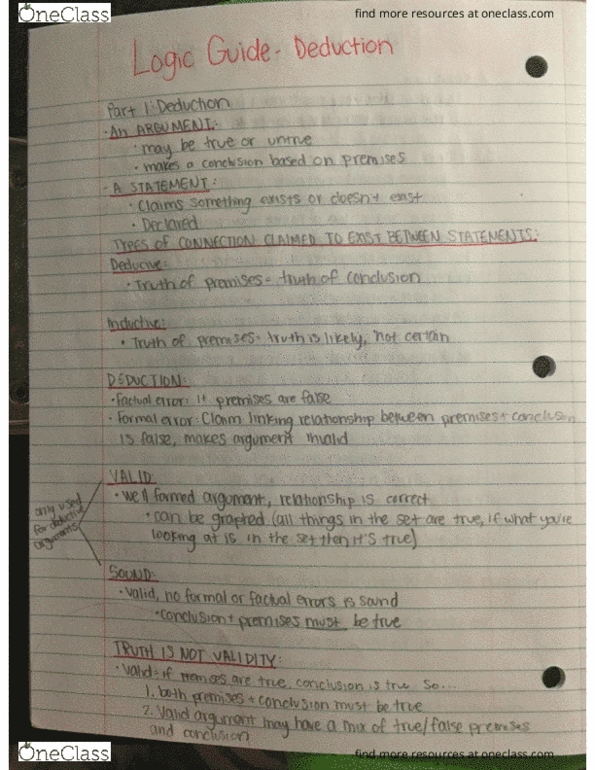 OneClass
find more resources at oneclass.com
Logic Guide - Deduction
Part 1: Deduction
· An ARGUMENT:
· may be true or untrue
· makes a conclusion based on premises
- A STATEMENT:
· Claims something exists or doesn't exist
· Declared
TYPES OF CONNECTION CLAIMED TO EXIST BETWEEN STATEMENTS:
Deducive:
· Truth of premises = truth of conclusion
Inductive:
· Truth of premises = truth is likely, not certain
DEDUCTION:
· Factual error: if premises are false
· Formal error: Claim linking relationship between premises + conclusion
is false, makes argument invalid
VALID:
· well formed argument, relationship is correct
· can be graphed (all things in the set are true, if what you're
looking at is in the set then it's true)
only used
for deductive
arguments
SOUND:
· Valid, no formal or factual errors is sound
· conclusion + premises must be true
TRUTH IS NOT VALIDITY:
· Valid = if premises are true, conclusion is true so...
1. both premises + conclusion must be true
2. Valid argument may have a mix of true/false premises
and conclusion
OneClass
find more resources at oneclass.com